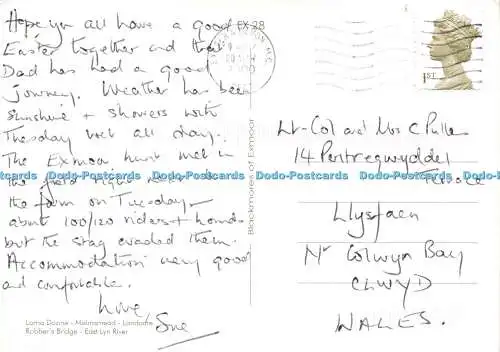 Hope you all have a good
EX 28
Easter together and that
Dad has had a good
journey. Weather has been
sunshine + showers with
Tuesday wet all day.
The Exmoor hunt met in
the field right next to
the farm on Tuesday -
about 100/120 riders + hounds
but the stag evaded them.
Accommodation very good
and comfortable.
Love,
Sue
Lorna Doone - Malmsmead - Landcatte
Robber's Bridge - East Lyn River
Blackmores of Exmoor
1ST
Lt-Col and Mrs C Pullen
14 Pentregwyddel
Terrace
Llysfaen
Nr Colwyn Bay
CLWYD
WALES.
Dodo-Postcards Dodo-Postcards Dodo-Postcards Dodo-Postcards Dodo-Postcards